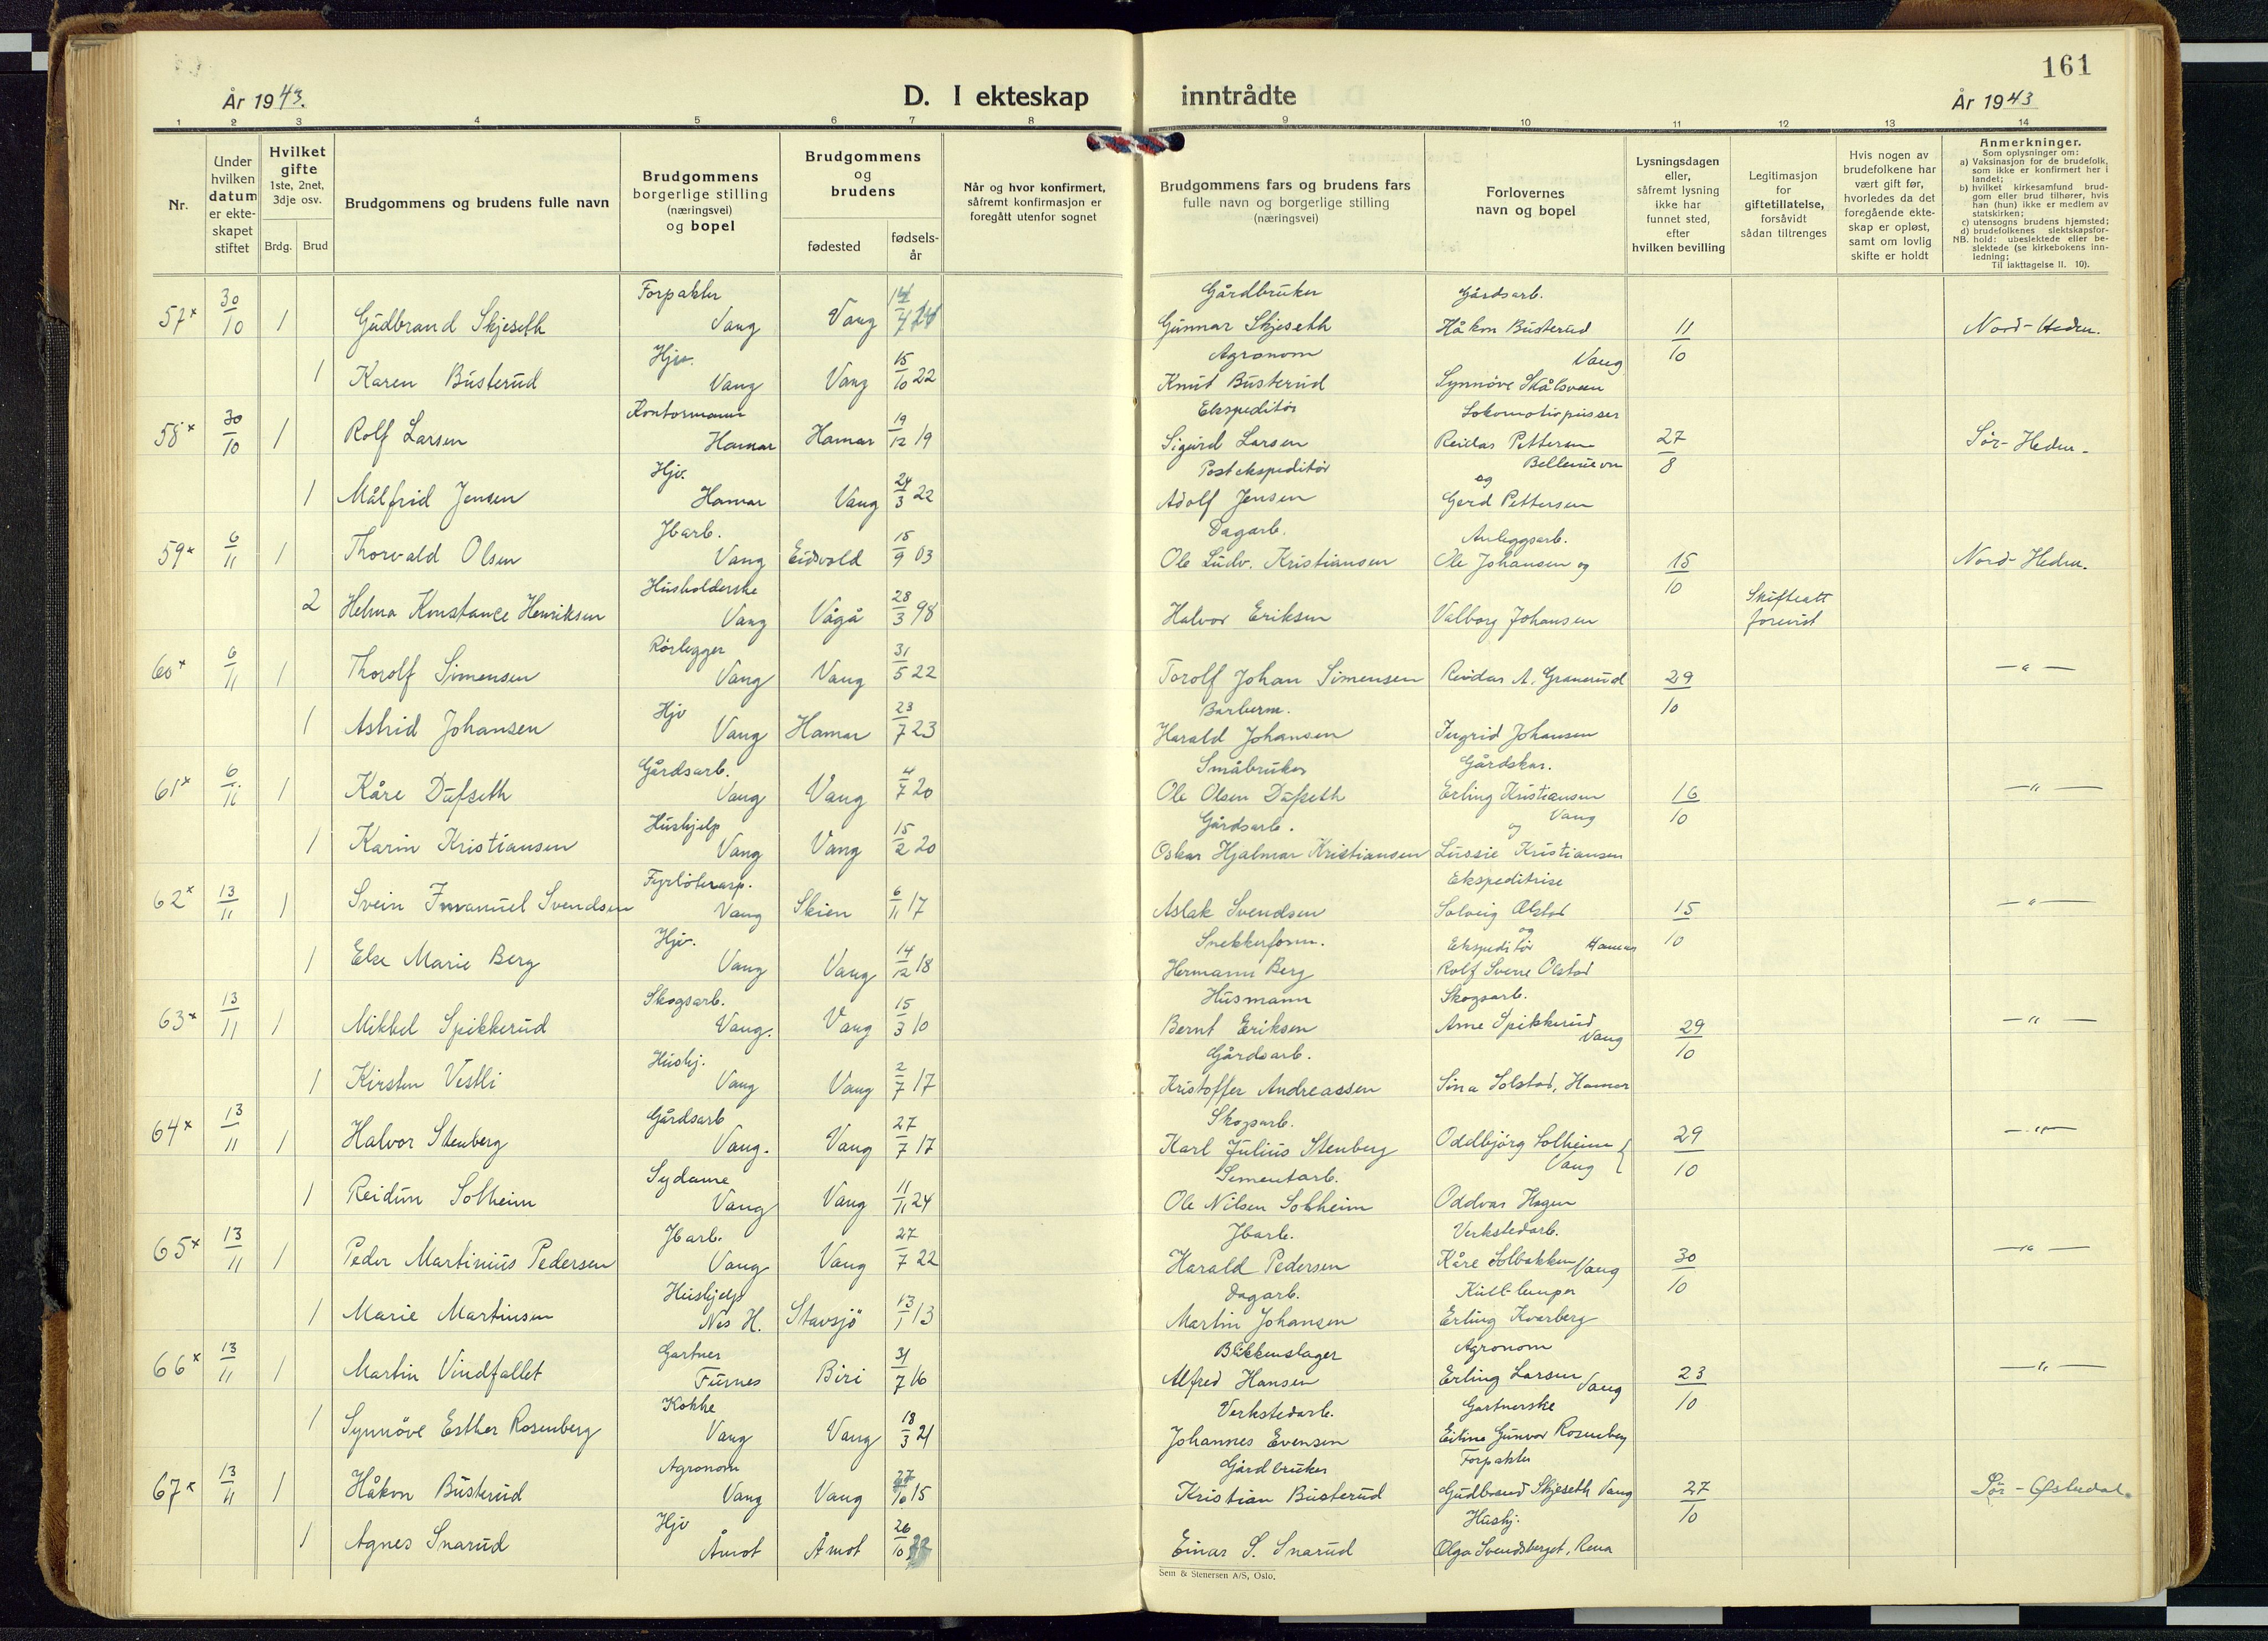 161
År 1943.
D. I ekteskap inntrådte
År 1943
1 2 3 4 5 6 7 8 9 10 11 12 13 14
Nr.
Under hvilken datum er ekteskapet stiftet
Hvilket gifte 1ste, 2net, 3dje osv.
Brdg. Brud
Brudgommens og brudens fulle navn
Brudgommens borgerlige stilling (næringsvei) og bopel
Brudgommens og brudens
fødested
fødsels-år
Når og hvor konfirmert, såfremt konfirmasjon er foregått utenfor sognet
Brudgommens fars og brudens fars fulle navn og borgerlige stilling (næringsvei)
Forlovernes navn og bopel
Lysningsdagen eller, såfremt lysning ikke har funnet sted, efter hvilken bevilling
Legitimasjon for giftetillatelse, forsåvidt sådan tiltrenges
Hvis nogen av brudefolkene har vært gift før, hvorledes da det foregående ekteskap er opløst, samt om lovlig skifte er holdt
Anmerkninger.
Som oplysninger om:
a) Vaksinasjon for de brudefolk, som ikke er konfirmert her i landet;
b) hvilket kirkesamfund brudgom eller brud tilhører, hvis han (hun) ikke er medlem av statskirken;
c) utensogns brudens hjemsted;
d) brudefolkenes slektskapsforhold: ubeslektede eller beslektede (se kirkebokens innledning;
NB. Til iakttagelse II. 10).
57x 30/10 1 Gudbrand Skjeseth Forpakter Vang Vang Gårdbruker Gunnar Skjeseth Gårdsarb. Håkon Busterud Vang 11/10 Nord-Hedm.
1 Karen Busterud Hjv. Vang Vang 15/10 22 Agronom Knut Busterud Synnöve
58x 30/10 1 Rolf Larsen Kontormann Hamar Hamar 19/12 19 Ekspeditör Sigurd Larsen Lokomotivpusser Reidar Pettersen 27/8 Sör-Hedm.
1 Målfrid Jensen Hjv. Hamar Vang 24/3 22 Postekspeditör Adolf Jensen og Gerd Pettersen
59x 6/11 1 Thorvald Olsen Jbarb. Vang Eidsvold 15/9 03 Dagarb. Ole Ludv. Kristiansen Anleggsarb. Ole Johansen og 15/10 Nord-Hedm.
2 Helma Konstance Henriksen Husholderske Vang Vågå 28/3 98 Halvor Eriksen Valborg Johansen Skifteatt forevist
60x 6/11 1 Thorolf Simensen Rörlegger Vang Vang 31/5 22 Torolf Johan Simensen Reidar A. Granerud 29/10 — " —
1 Astrid Johansen Hjv Vang Hamar 23/7 23 Barberm. Harald Johansen Ingrid Johansen
61x 6/11 1 Kåre Dufseth Gårdsarb. Vang Vang 4/7 20 Småbruker Ole Olsen Dufseth Gårdskar. Erling Kristiansen Vang 16/10 — " —
1 Karin Kristiansen Hushjelp Vang Vang 15/2 20 Gårdsarb. Oskar Hjalmar Kristiansen og Lussie Kristiansen
62x 13/11 1 Svein Immanuel Svendsen Vang Skien 6/11 17 Aslak Svendsen Ekspeditrise Solveig Olstad 15/10 — " —
1 Else Marie Berg Hjv. Vang Vang 14/12 18 Snekkerform. Hermann Berg og Ekspeditör Hamar Rolf Sverre Olstad
63x 13/11 1 Mikkel Spikkerud Skogsarb. Vang. Vang 15/3 10 Husmann Bernt Eriksen Skogsarb. Arne Spikkerud Vang 29/10 — " —
1 Kirsten Vestli Hushj. Vang Vang 2/7 17 Gårdsarb. Kristoffer Andreassen Sina Solstad, Hamar
64x 13/11 1 Halvor Stenberg Gårdsarb Vang. Vang 27/7 17 Skogsarb. Karl Julius Stenberg Oddbjörg Solheim Vang 29/10 — " —
1 Reidun Solheim Sydame Vang Vang 11/11 24 Sementarb. Ole Nilsen Solheim Oddvar Hagen
65x 13/11 1 Peder Martinius Pedersen Jbarb. Vang Vang 27/7 22 Jbarb. Harald Pedersen Verkstedarb. Kåre Solbakken Vang 30/10 — " —
1 Marie Martinsen Hushjelp Nes H. Stavsjö 13/1 13 Dagarb. Martin Johansen Kull-lemper Erling Kvarberg
66x 13/11 1 Martin Vindfallet Gartner Furnes Biri 31/7 16 Blikkenslager Alfred Hansen Agronom Erling Larsen Vang 23/10 — " —
1 Synnöve Esther Rosenberg Kokke Vang Vang 18/3 21 Verkstedarb. Johannes Evensen Gartnerske Gunvor Rosenberg
67x 13/11 1 Håkon Busterud Agronom Vang Vang 27/10 15 Gårdbruker Kristian Busterud Forpakter Gudbrand Skjeseth Vang 27/10 Sör-Østerdal.
1 Agnes Snarud Hjv Åmot Åmot 26/10 Einar S. Snarud Hushj. Olga Svendsberget, Rena
Sem & Stenersen A/S, Oslo.